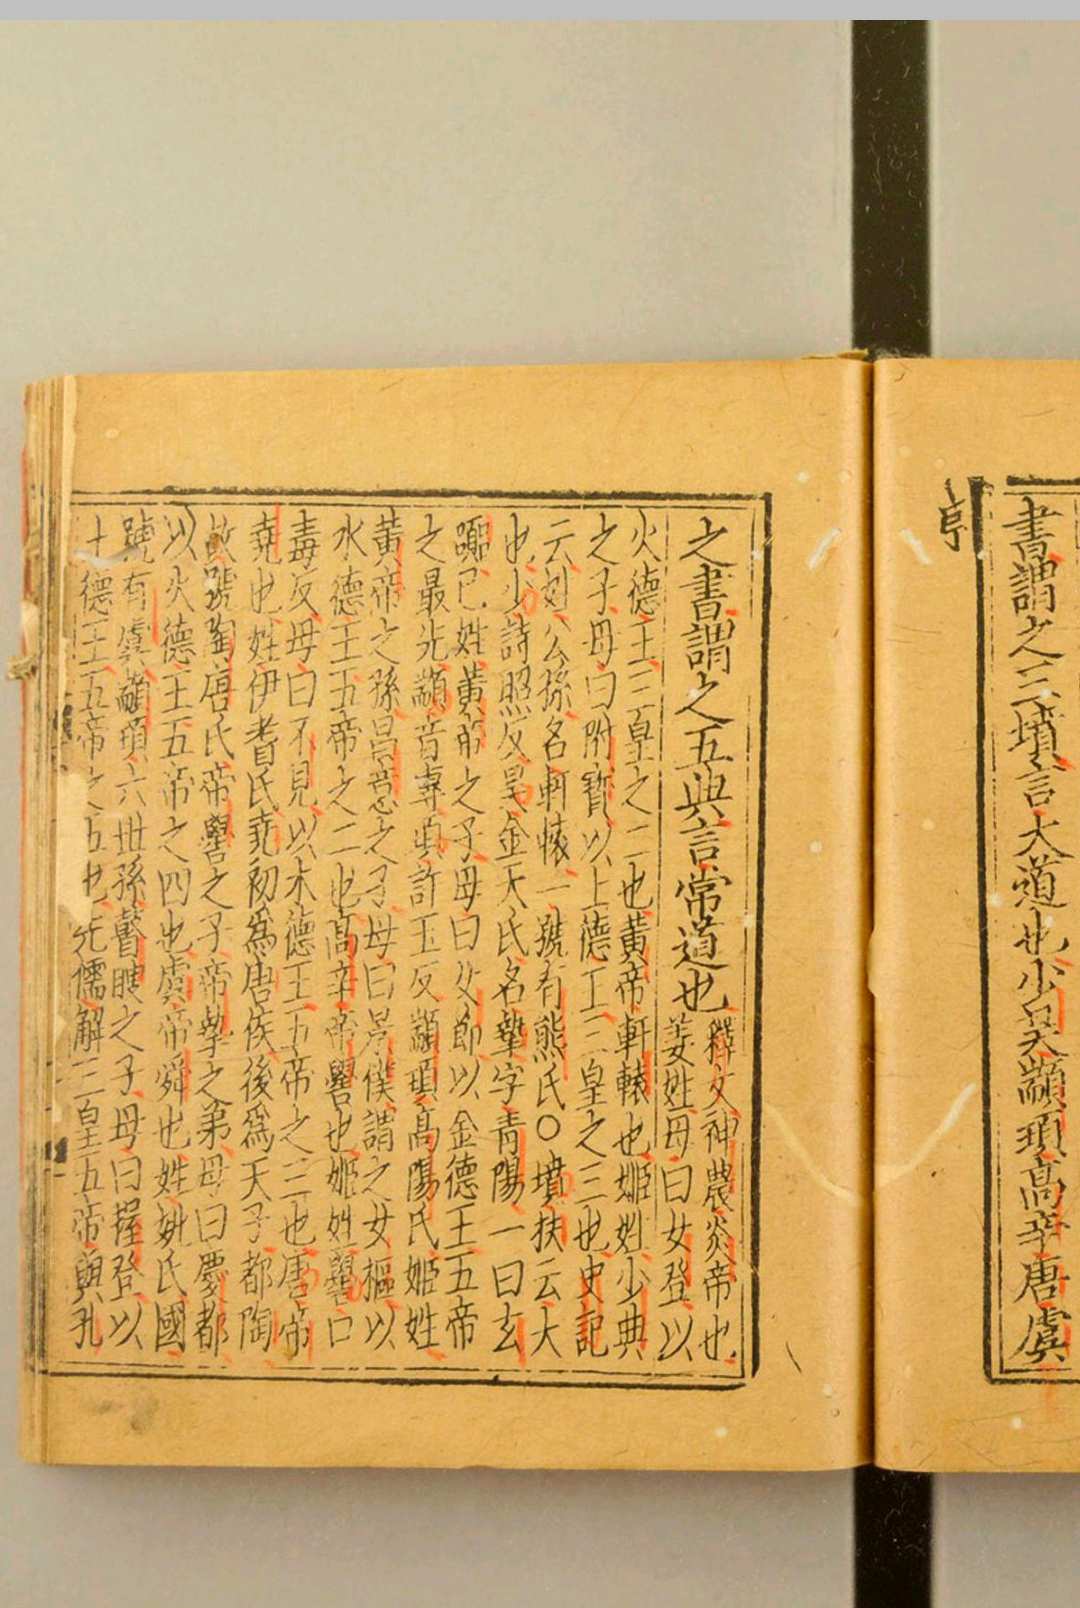 書謂之三墳言大道也少昊顓頊高辛唐虞
亭
之書謂之五典言常道也
釋文神農炎帝也
姜姓母曰女登以
火德王三皇之二也黃帝軒轅也姬姓少典
之子母曰附寶以土德王三皇之三也史記
云姓公孫名軒轅一號有熊氏〇墳扶云大
也少詩照反昊金天氏名摯字青陽一曰玄
囂己姓黃帝之子母曰女節以金德王五帝
之最先顓音專頊許玉反顓頊高陽氏姬姓
黃帝之孫昌意之子母曰景僕謂之女樞以
水德王五帝之二也高辛帝嚳也姬姓嚳口
毒反母曰不見以木德王五帝之三也唐帝
堯也姓伊耆氏堯初爲唐侯後爲天子都陶
故號陶唐氏帝嚳之子帝摯之弟母曰慶都
以火德王五帝之四也虞帝舜也姓姚氏國
號有虞顓頊六世孫瞽瞍之子母曰握登以
土德王五帝之五也先儒解三皇五帝與孔